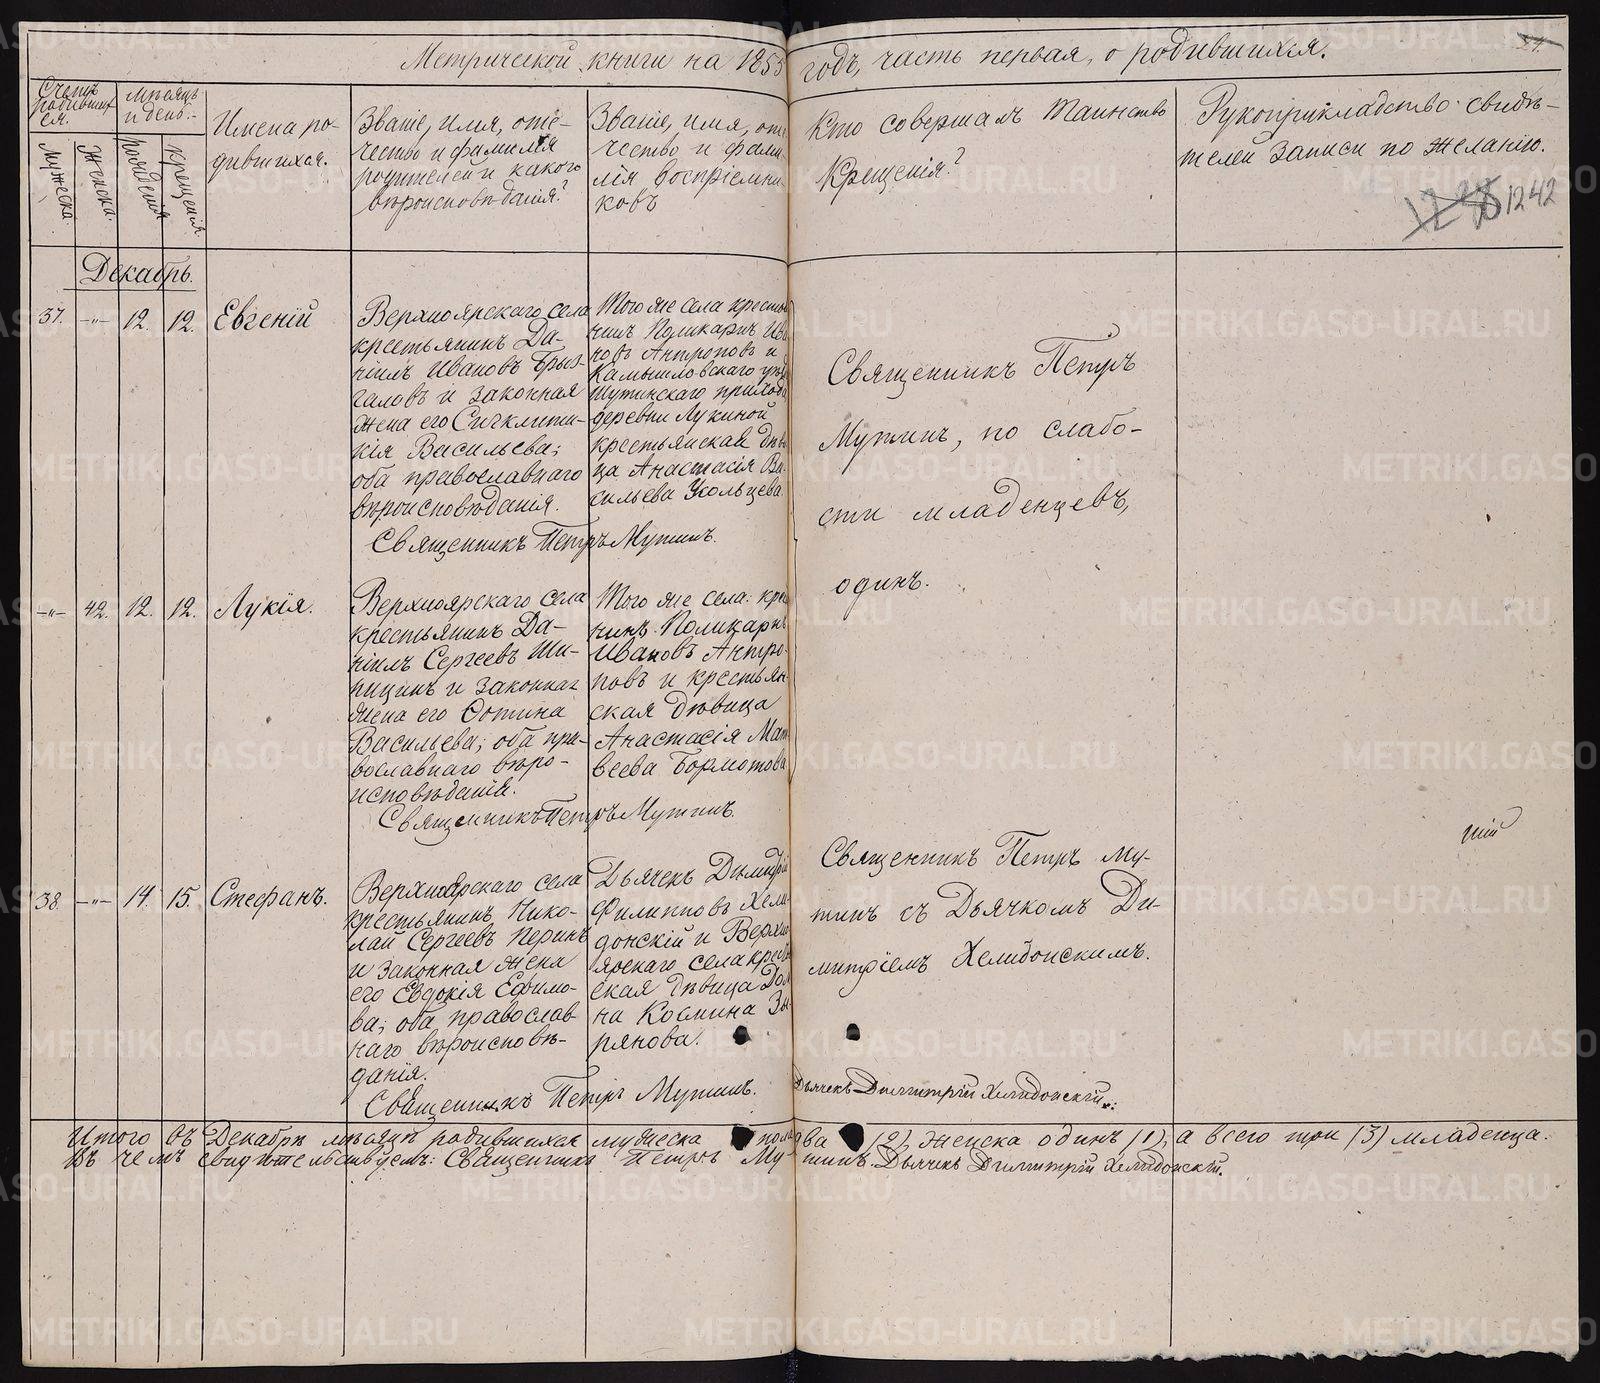 Метрической книги на 1855 годъ, часть первая, о родившихся.
Счетъ
родивших
ся.
Мѣсяцъ
и день.
Мужеска.
Женска.
Рожденія
Крещенія.
Имена ро-
дившихся.
Званіе, имя, оте-
чество и фамилія
родителей и какого
вѣроисповѣданія?
Званіе, имя, оте
чество и фами
лія воспріемни
ковъ
Кто совершалъ Таинство
Крещенія?
Рукоприкладство свидѣ-
телей записи по желанію.
1242
Декабрь.
37. -"- 12. 12. Евгеній
Верхноярскаго села
крестьянинъ Да-
ніилъ Ивановъ Брыз-
галовъ и законная
жена его Сигклити-
кія Васильева;
оба православнаго
вѣроисповѣданія.
Того же села крестья
нинъ Поликарпъ Ива
новъ Антроповъ и
Камышловскаго уѣзда
Шутинскаго прихода
деревни Лукиной
крестьянская дѣви
ца Анастасія Ва
сильева Укольцева.
Священникъ Петръ Мутинъ.
Священникъ Петръ
Мутинъ, по слабо-
сти младенцевъ,
одинъ.
-"- 42. 12. 12. Лукія.
Верхноярскаго села
крестьянинъ Да-
ніилъ Сергеевъ Ши-
пицинъ и законная
жена его Фотина
Васильева; оба пра-
вославнаго вѣро-
исповѣданія.
Того же села кресть
нинъ Поликарпъ
Ивановъ Антро-
повъ и крестьян
ская дѣвица
Анастасія Мат
веева Бормотова
Священникъ Петръ Мутинъ.
38. -"- 14. 15. Стефанъ.
Верхноярскаго села
крестьянинъ Нико-
лай Сергеевъ Перинъ
и законная жена
его Евдокія Ефимо-
ва; оба православ
наго вѣроисповѣ-
данія.
Дьячекъ Димитрій
Филипповъ Хели-
донскій и Верхно
ярскаго села кресть
ская дѣвица Дом
на Космина Зы-
рянова.
Священникъ Петръ Мутинъ.
Священникъ Петръ Му-
тинъ съ Дьячкомъ Ди-
митріемъ Хелидонскимъ.
Дьячекъ Димитрій Хелидонскій.
Итого въ Декабрѣ мѣсяцѣ родившихся мужеска пола два (2), женска одинъ (1), а всего три (3) младенца.
Въ чемъ свидѣтельствуемъ: Священникъ Петръ Мутинъ. Дьячекъ Димитрій Хелидонскій.
METRIKI.GASO-URAL.RU